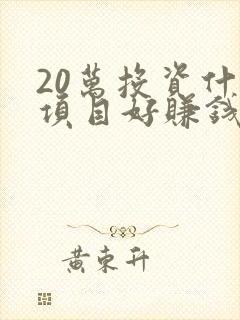 20萬投資什
項目好賺錢
黃東升